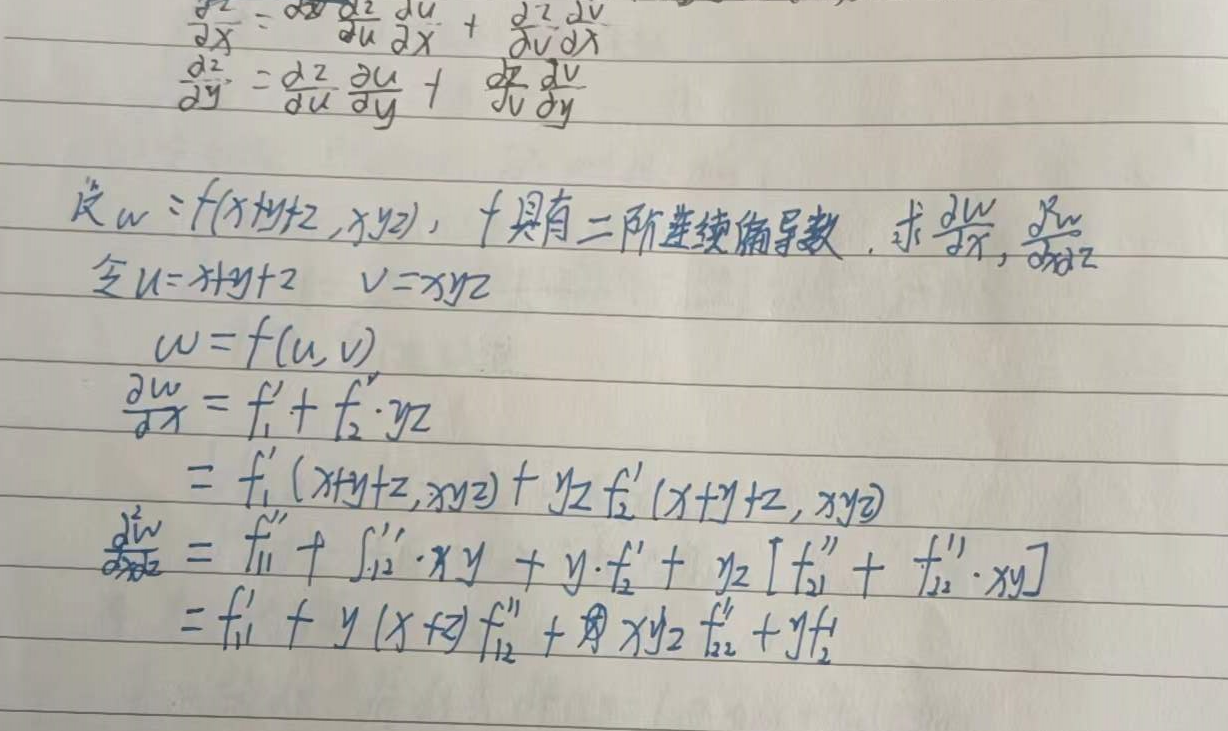 ∂z/∂x = ∂z/∂u ∂u/∂x + ∂z/∂v ∂v/∂x
∂z/∂y = ∂z/∂u ∂u/∂y + ∂z/∂v ∂v/∂y
设 w = f(x+y+z, xyz), f具有二阶连续偏导数. 求 ∂w/∂x, ∂²w/∂x∂z
令 u = x+y+z v = xyz
w = f(u, v)
∂w/∂x = f₁′ + f₂′ · yz
= f₁′ (x+y+z, xyz) + yz f₂′ (x+y+z, xyz)
∂²w/∂x∂z = f₁₁″ + f₁₂″ · xy + y · f₂′ + yz [f₂₁″ + f₂₂″ · xy]
= f₁₁′ + y (x+z) f₁₂″ + xy²z f₂₂″ + y f₂′